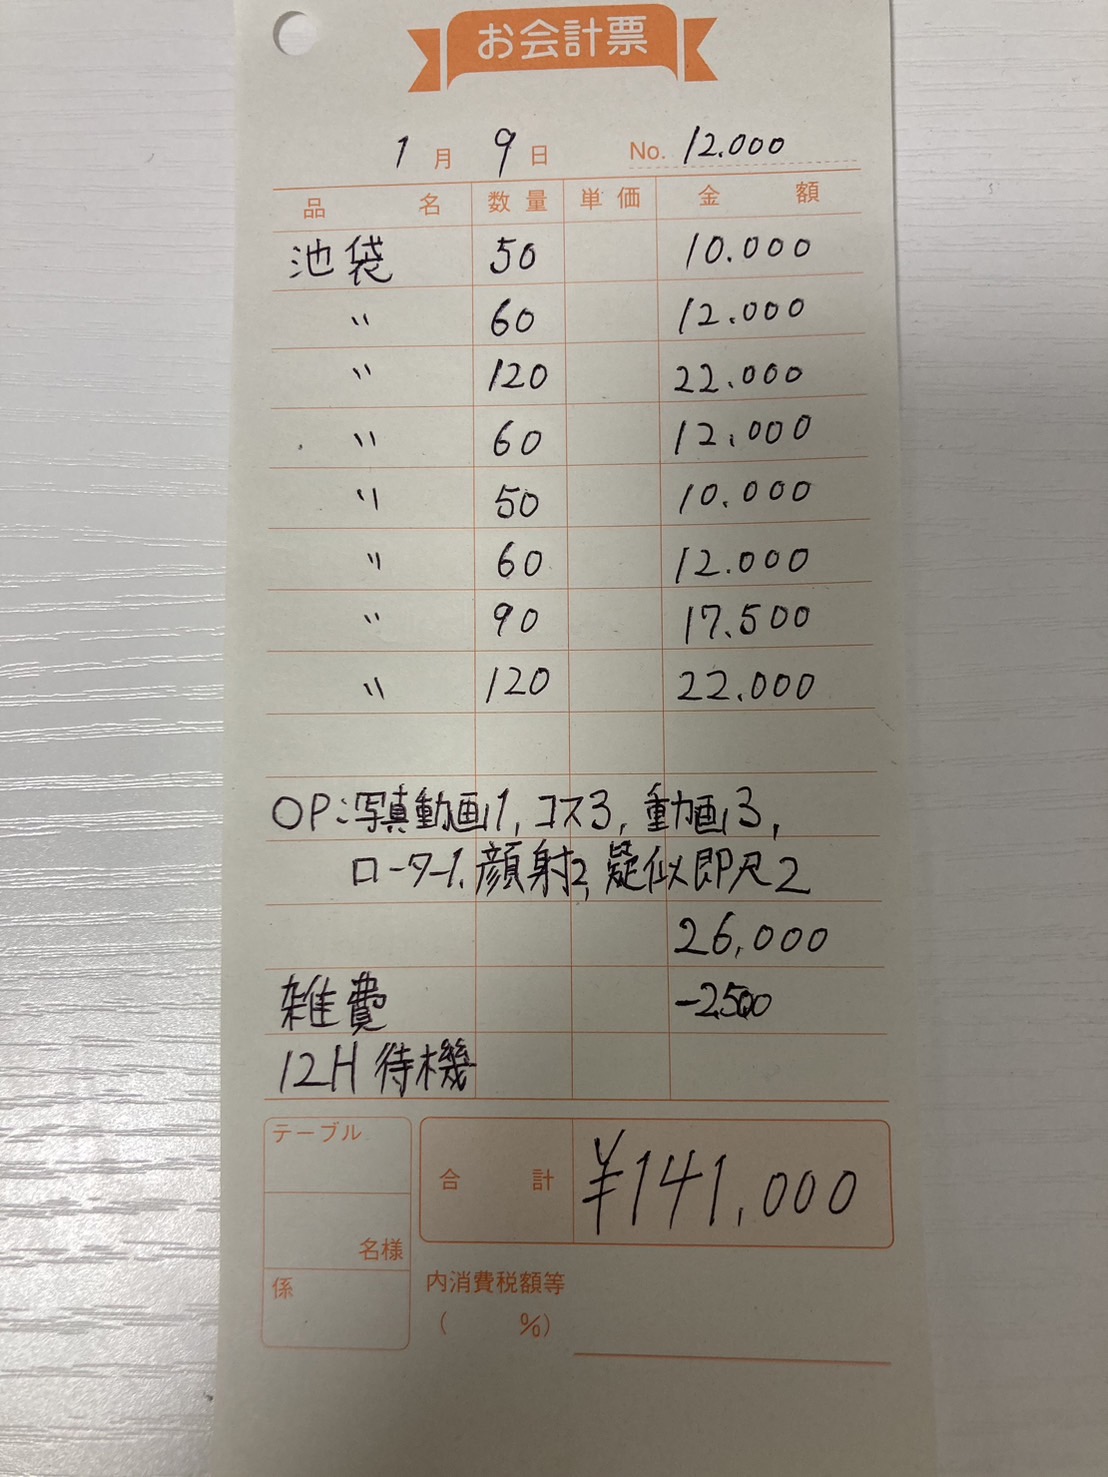 お会計票
1月 9日 No. 12.000
品名 数量 単価 金額
池袋 50 10.000
〃 60 12.000
〃 120 22.000
〃 60 12.000
〃 50 10.000
〃 60 12.000
〃 90 17.500
〃 120 22.000
OP:写真動画1, コス3, 動画3,
ローター1, 顔射2, 疑似即尺2
26,000
雑費 -2500
12H 待機
テーブル
合計 ¥141,000
名様
係
内消費税額等
( %)